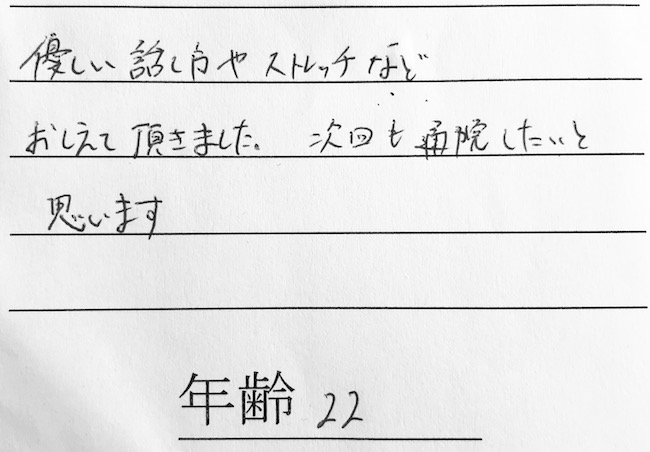 優しい話し方やストレッチなど
おしえて頂きました。次回も通院したいと
思います
年齢 22